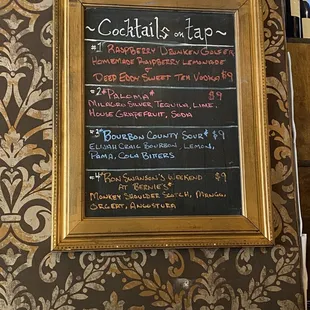 ~Cocktails on tap~
#1 Raspberry Drunken Golfer
Homemade Raspberry Lemonade
+
Deep Eddy Sweet Tea Vodka $9
#2 "Paloma" $9
Milagro Silver Tequila, Lime,
House Grapefruit, Soda
#3 "Bourbon County Sour" $9
Elijah Craig Bourbon, Lemon,
Pama, Cola Bitters
#4 "Ron Swanson's Weekend $9
at Bernie's"
Monkey Shoulder Scotch, Mango
Orgeat, Angostura